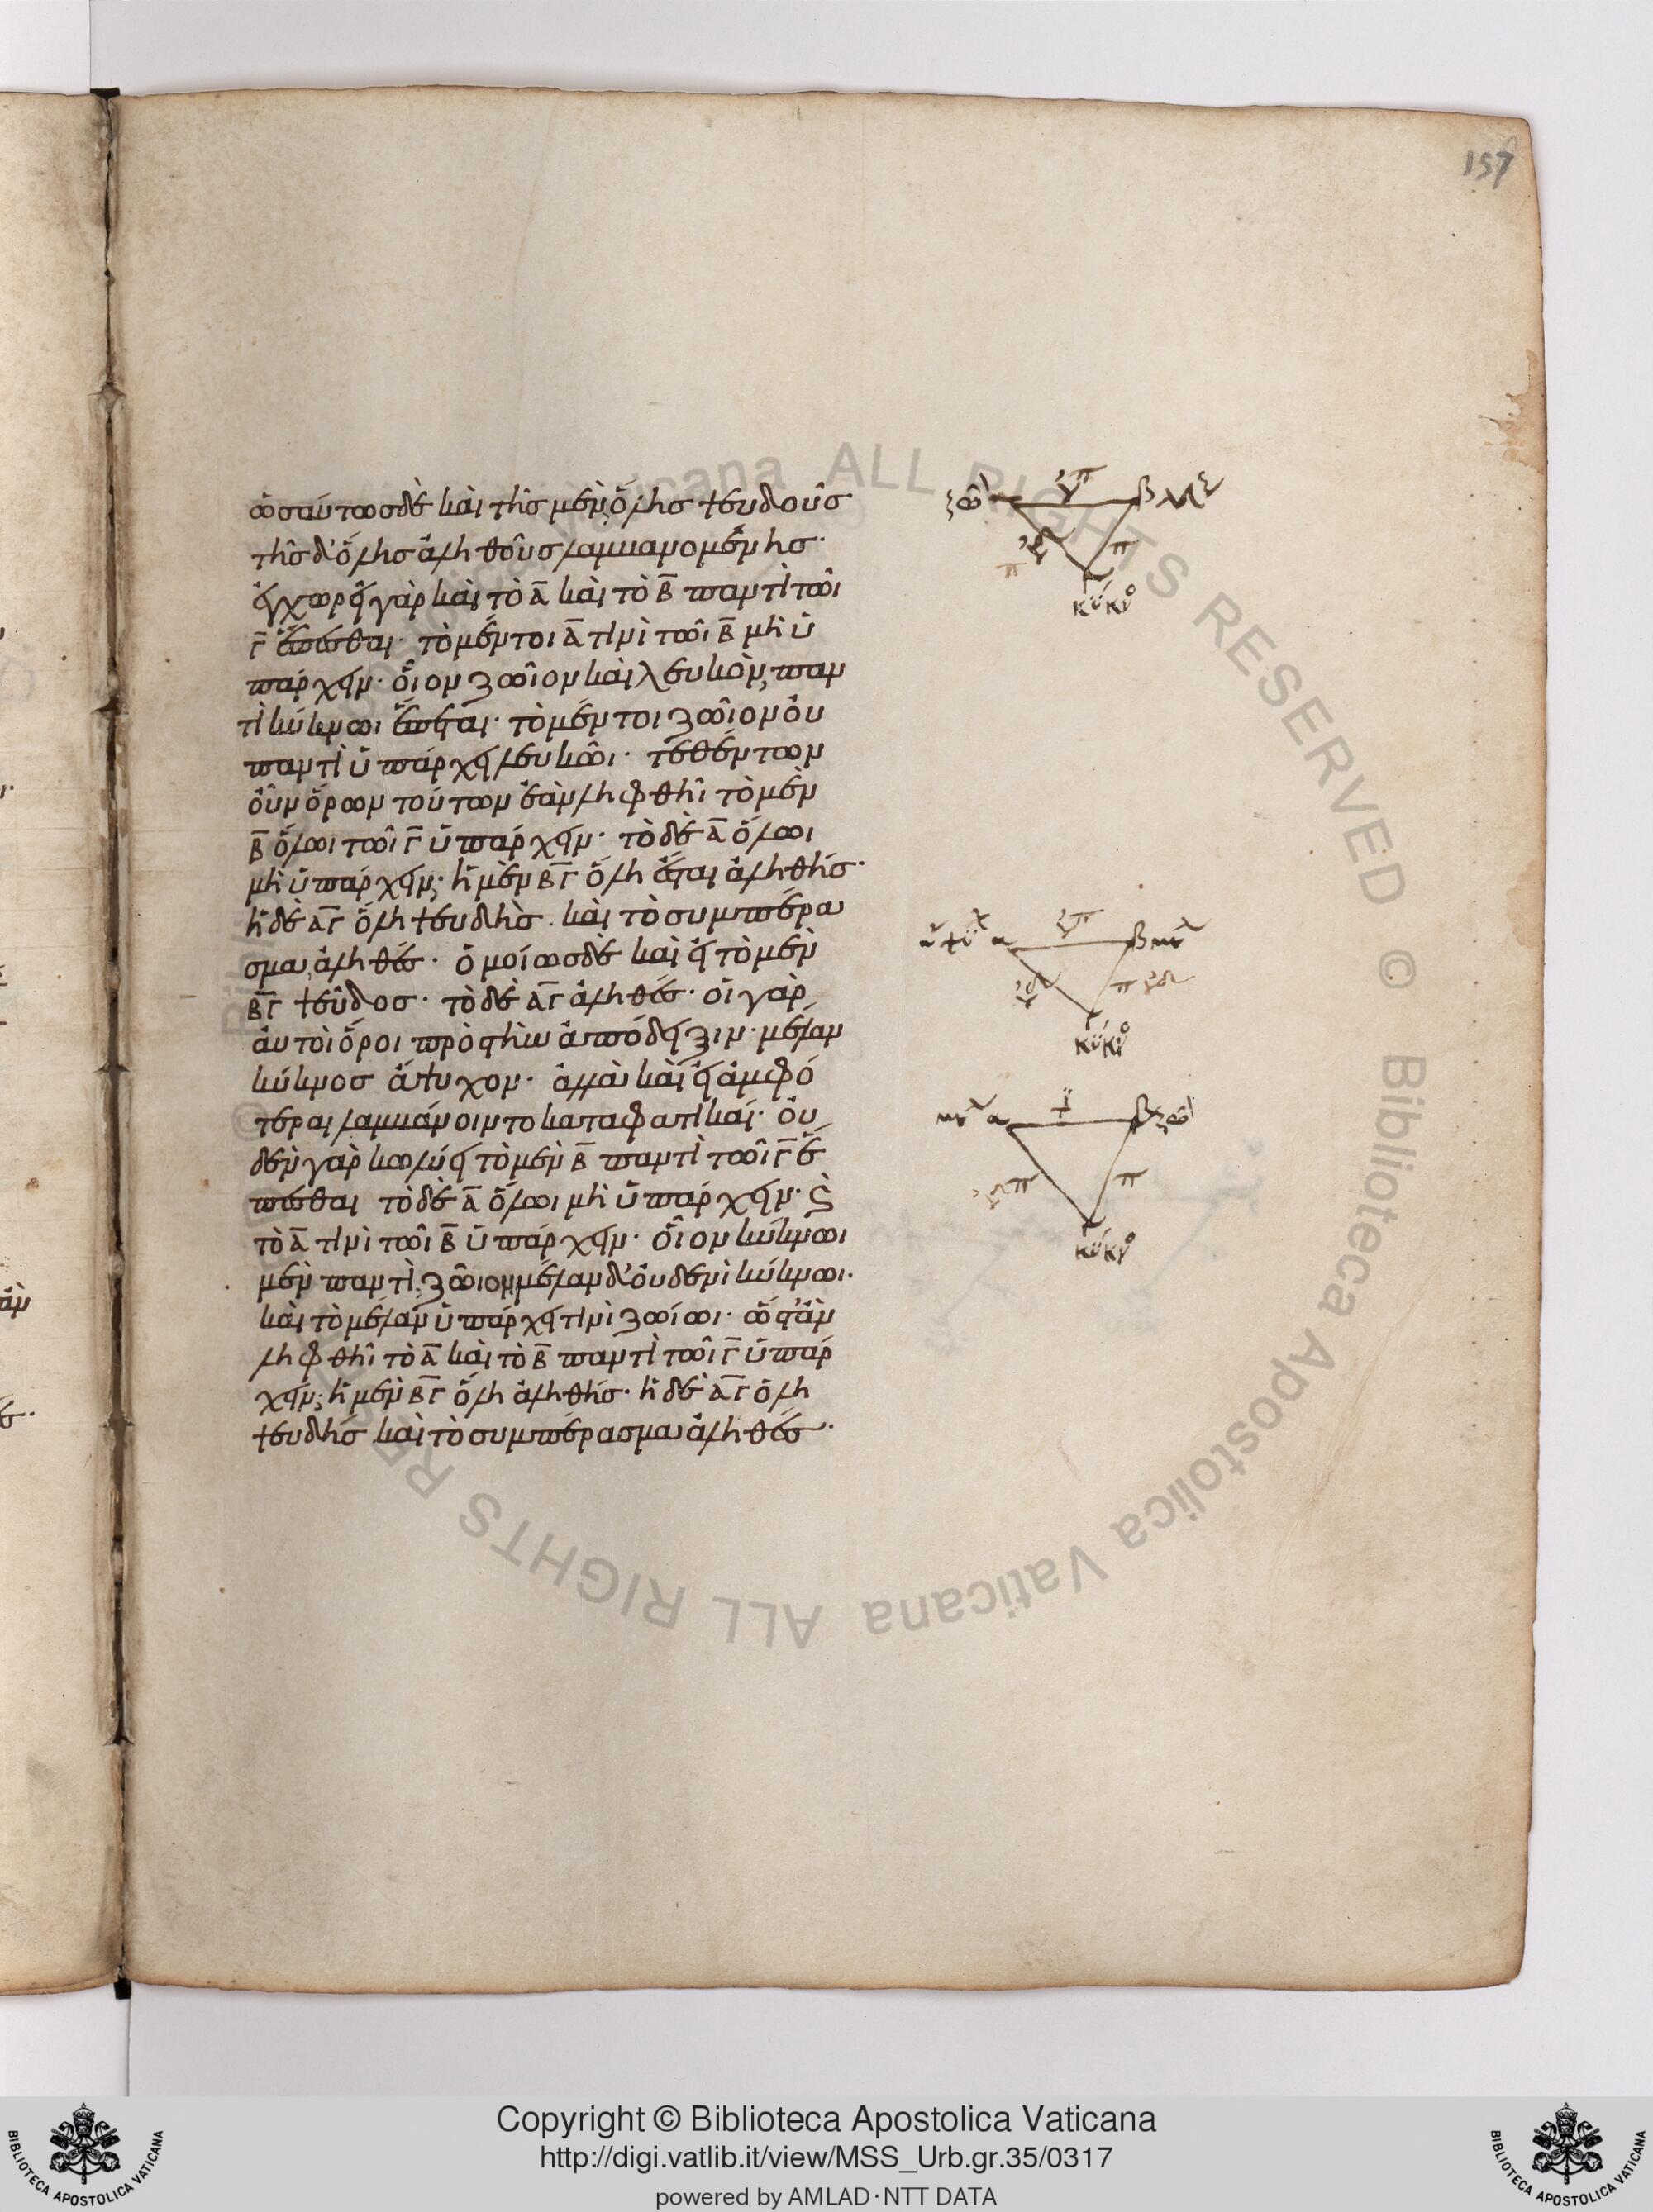 157
ὡσαύτως δὲ καὶ τῆς μὲν ὅλης ψευδοῦς
τῆς δ' ὅλης ἀληθοῦς λαμβανομένης·
ἐγχωρεῖ γὰρ καὶ τὸ Α καὶ τὸ Β παντὶ τῶι
Γ ἕπεσθαι· τὸ μέντοι Α τινὶ τῶι Β μὴ ὑ
πάρχειν· οἷον ζῶιον καὶ λευκὸν, παν
τὶ κύκνωι ἕπεται· τὸ μέντοι ζῶιον οὐ
παντὶ ὑπάρχει λευκῶι· τεθέντων
οὖν ὅρων τούτων ἐὰν ληφθῆι τὸ μὲν
Β ὅλωι τῶι Γ ὑπάρχειν· τὸ δὲ Α ὅλωι
μὴ ὑπάρχειν, ἡ μὲν ΒΓ ὅλη ἔσται ἀληθής·
ἡ δὲ ΑΓ ὅλη ψευδὴς. καὶ τὸ συμπέρα
σμα ἀληθές· ὁμοίως δὲ καὶ εἰ τὸ μὲν
ΒΓ ψεῦδος· τὸ δὲ ΑΓ ἀληθές· οἱ γὰρ
αὐτοὶ ὅροι πρὸς τὴν ἀπόδειξιν· μέλαν
κύκνος ἄψυχον· ἀλλὰ καὶ εἰ ἀμφό
τεραι λαμβάνοιντο καταφατικαί· οὐ
δὲν γὰρ κωλύει τὸ μὲν Β παντὶ τῶι Γ ἕ
πεσθαι τὸ δὲ Α ὅλωι μὴ ὑπάρχειν· ϛ
τὸ Α τινὶ τῶι Β ὑπάρχειν· οἷον κύκνωι
μὲν παντὶ ζῶιον, μέλαν δ' οὐδενὶ κύκνωι·
καὶ τὸ μέλαν ὑπάρχει τινὶ ζώιωι· ὥστ' ἂν
ληφθῆι τὸ Α καὶ τὸ Β παντὶ τῶι Γ ὑπάρ
χειν, ἡ μὲν ΒΓ ὅλη ἀληθής· ἡ δὲ ΑΓ ὅλη
ψευδής καὶ τὸ συμπέρασμα ἀληθές·
Copyright © Biblioteca Apostolica Vaticana
http://digi.vatlib.it/view/MSS_Urb.gr.35/0317
powered by AMLAD·NTT DATA
BIBLIOTECA APOSTOLICA VATICANA
BIBLIOTECA APOSTOLICA VATICANA